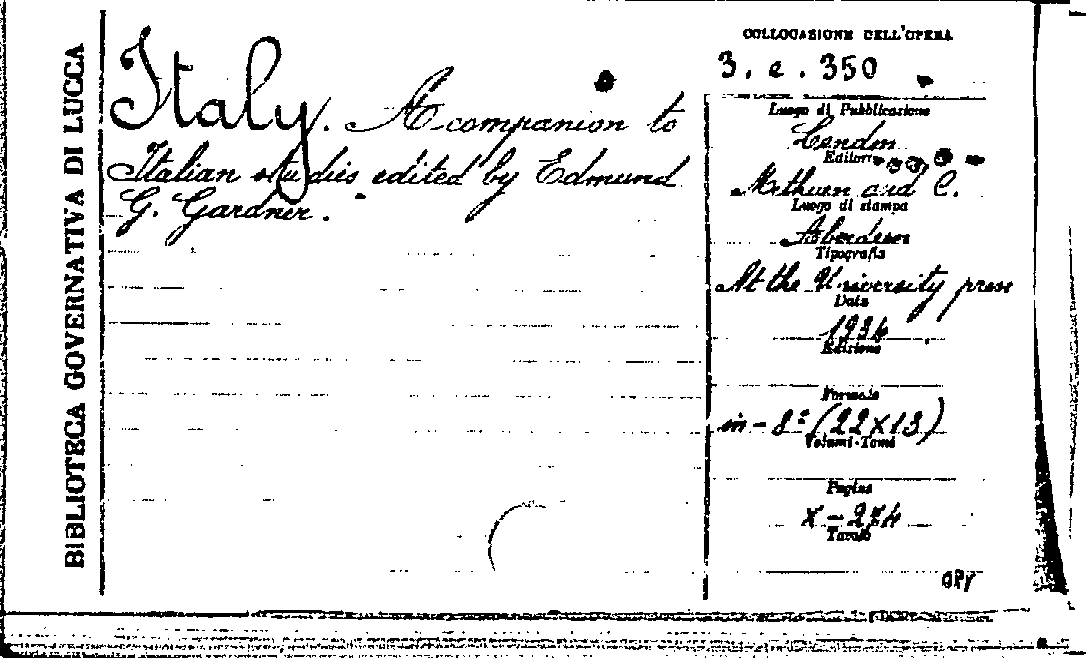 BIBLIOTECA GOVERNATIVA DI LUCCA
Italy. A companion to
Italian studies edited by Edmund
G. Gardner.
COLLOCAZIONE DELL'OPERA
3. e. 350
Luogo di Pubblicazione
London
Editore
Methuen and C.
Luogo di stampa
Aberdeen
Tipografia
At the University press
Data
1934
Edizione
Formato
in-8º (22x13)
Volumi-Tomi
Pagine
X-274
Tavole